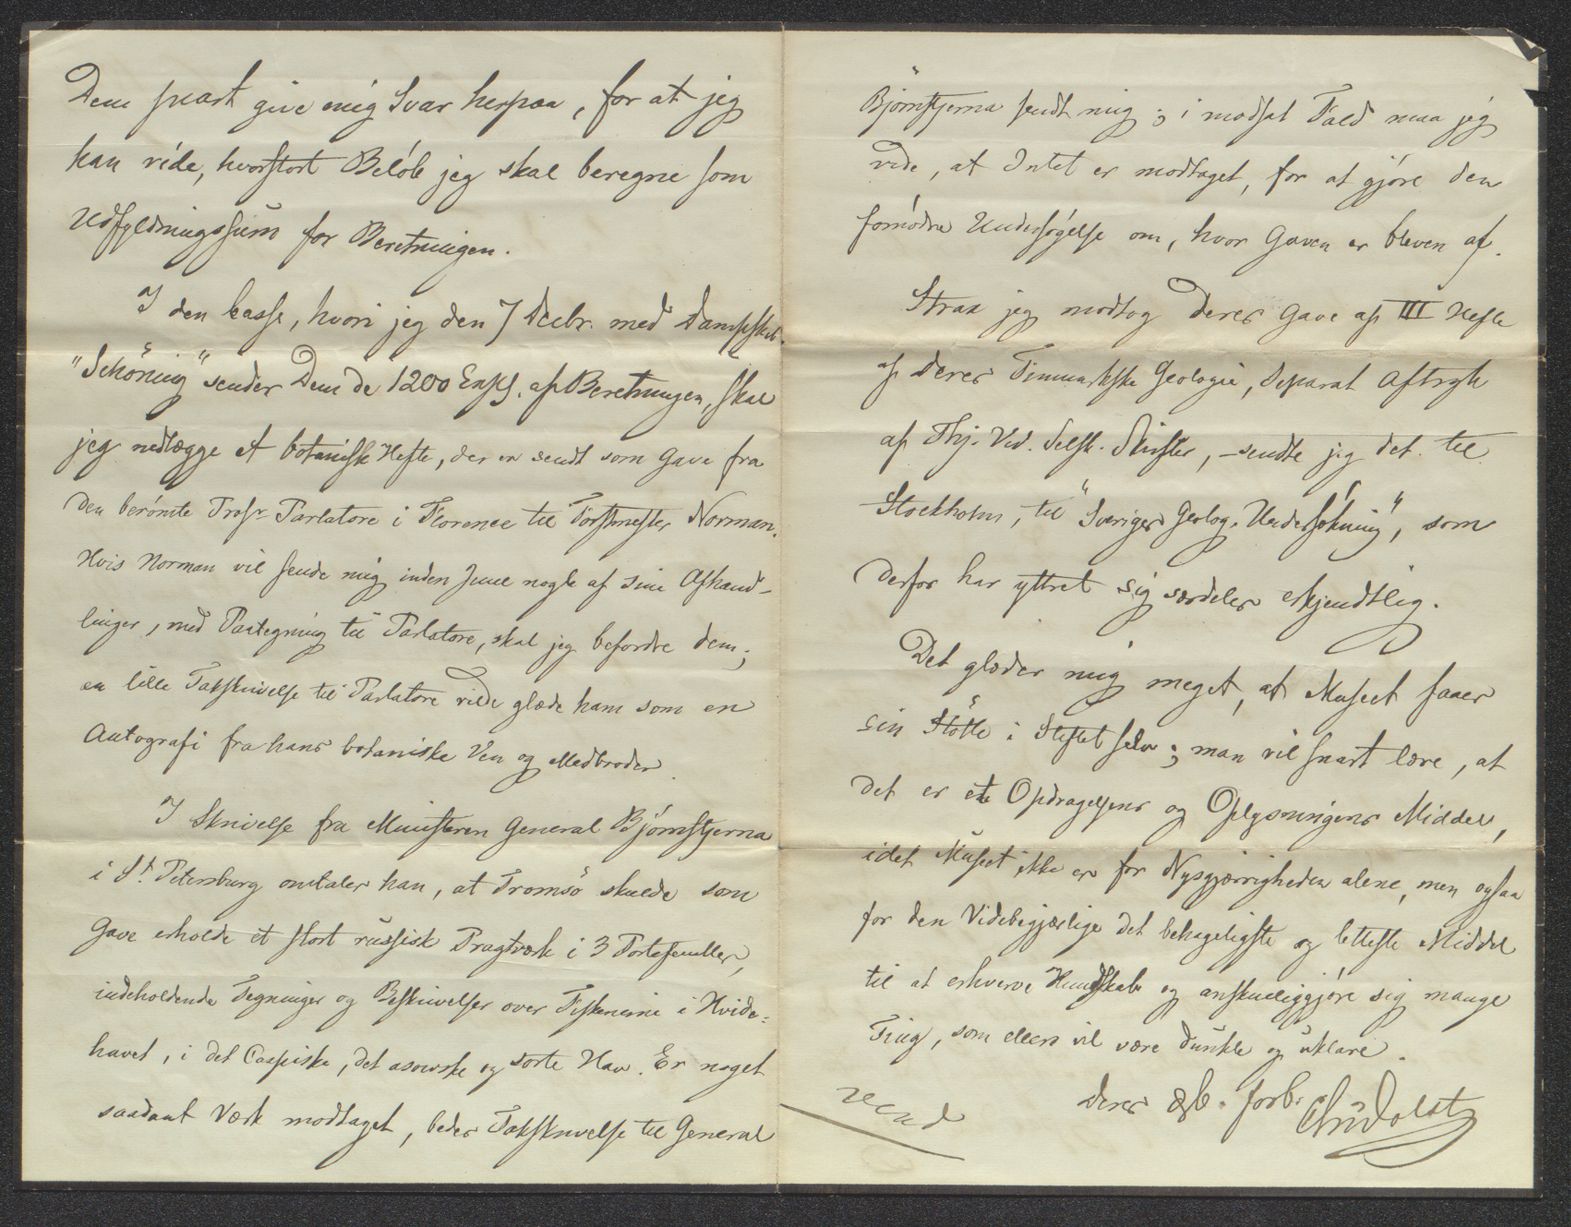 Dem snart give mig Svar herpaa, for at jeg
kan vide, hvorstort Beløb jeg skal beregne som
Udfyldningssum for Beretningen.
I den Casse, hvori jeg den 7 Decbr. med Dampskib.
"Schöning" sender Dem de 1200 Expl. af Beretningen, skal
jeg nedlægge et botanisk Hefte, der er sendt som Gave fra
den berömte Profr Parlatore i Florence til Forstmester Norman.
Hvis Norman vil sende mig inden Juul nogle af sine Afhand-
linger, med Paategning til Parlatore, skal jeg befordre dem;
en lille Takskrivelse til Parlatore vilde glæde ham som en
Autografi fra hans botaniske Ven og Medbroder.
I Skrivelse fra Ministeren General Björnstjerna
i St. Petersburg omtaler han, at Tromsö skulde som
Gave erholde et stort russisk Pragtværk i 3 Portefeuller,
indeholdende Tegninger og Beskrivelser over Fiskerierne i Hvide-
havet, i det Caspiske, det asowske og sorte Hav. Er noget
saadant Værk modtaget, bedes Takskrivelse til General
Björnstjerna sendt mig; i modsat Fald maa jeg
vide, at Intet er modtaget, for at gjøre den
fornödne Undersøgelse om, hvor Gaven er bleven af.
Strax jeg modtog Deres Gave af III Hefte
af Deres Finmarkske Geologie, Separat Aftryk
af Thj. Vid. Selsk. Skrifter, - sendte jeg det til
Stockholm, til "Sveriges Geolog. Undersökning", som
derfor har yttret sig særdeles erkjendtlig.
Det glæder mig meget, at Museet faaer
sin Stötte i Stiftet selv; man vil snart lære, at
det er et Opdragelsens og Oplysningens Middel,
idet Museet ikke er for Nysgjærrigheden alene, men ogsaa
for den Videbegjærlige det behageligste og letteste Middel
til at erhverve Kundskab og anskueliggjøre sig mange
Ting, som ellers vil være dunkle og uklare.
Deres ærb. forb.
Vend